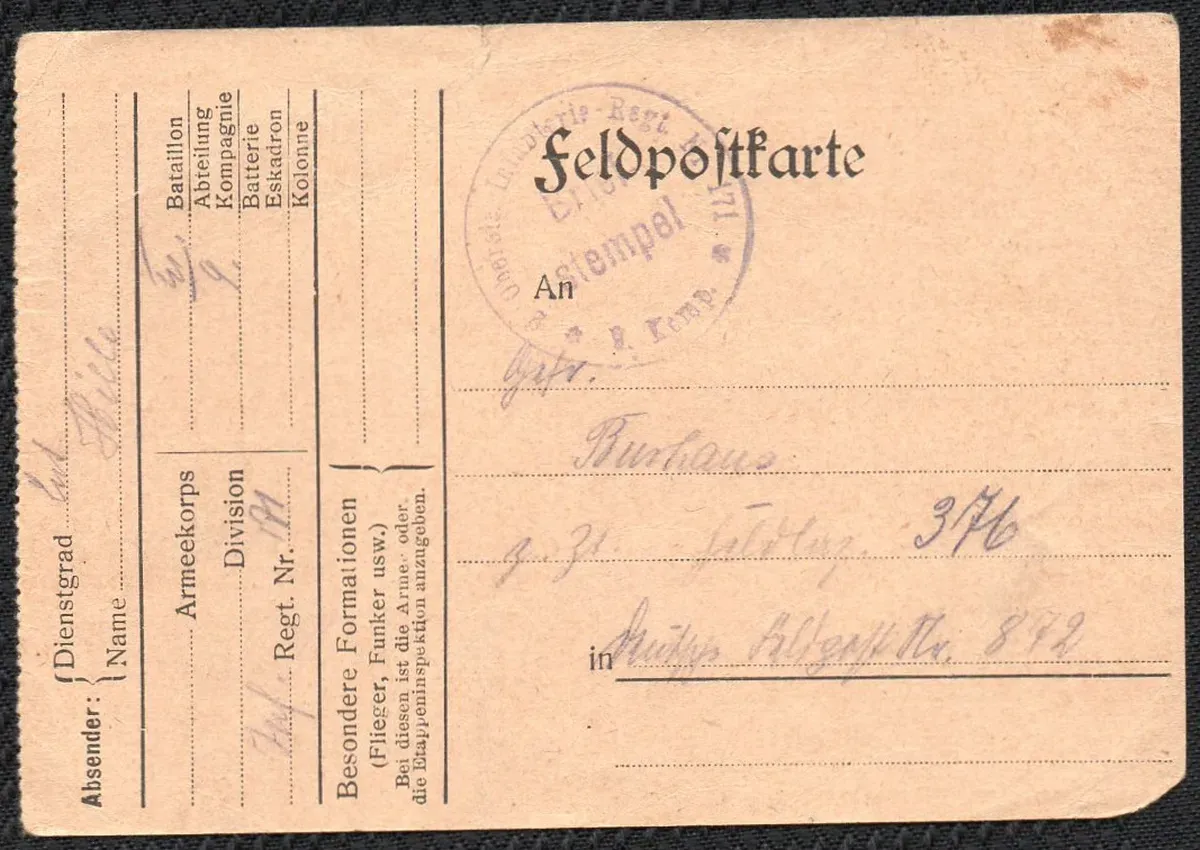 Feldpostkarte
Oberels. Infanterie-Regt. Nr. 171
Brief
stempel
* 9. Komp. *
An
Gefr.
Burhans
z. Zt. Feldlaz. 376
in Deutsche Feldpost Nr. 872
Absender:
Dienstgrad
Name Hille
Bataillon
Abteilung
Kompagnie
Batterie
Eskadron
Kolonne
9.
Armeekorps
Division
Inf. Regt. Nr. 171
Besondere Formationen
(Flieger, Funker usw.)
Bei diesen ist die Armee oder
die Etappeninspektion anzugeben.